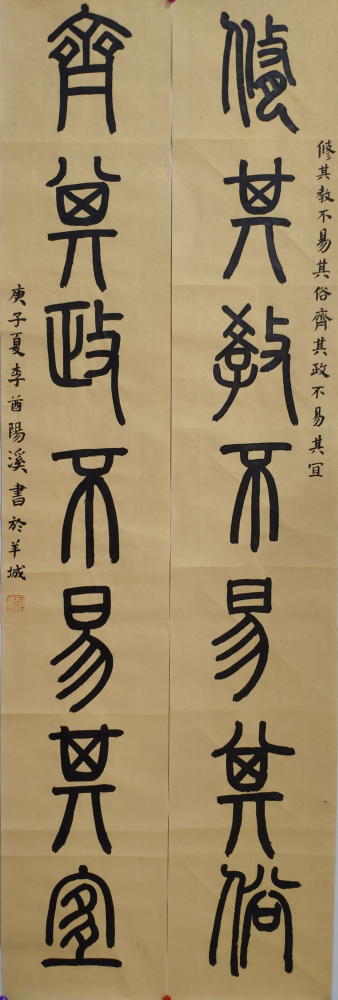 修其教不易其俗齊其政不易其冝
修其教不易其俗
齊其政不易其宜
庚子夏李酋陽溪書於羊城